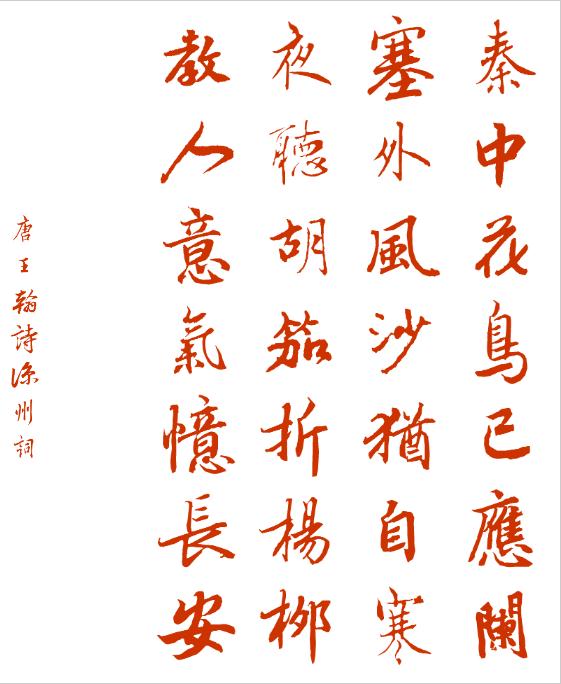 秦中花鳥已應闌
塞外風沙猶自寒
夜聽胡笳折楊柳
教人意氣憶長安
唐王翰詩涼州詞